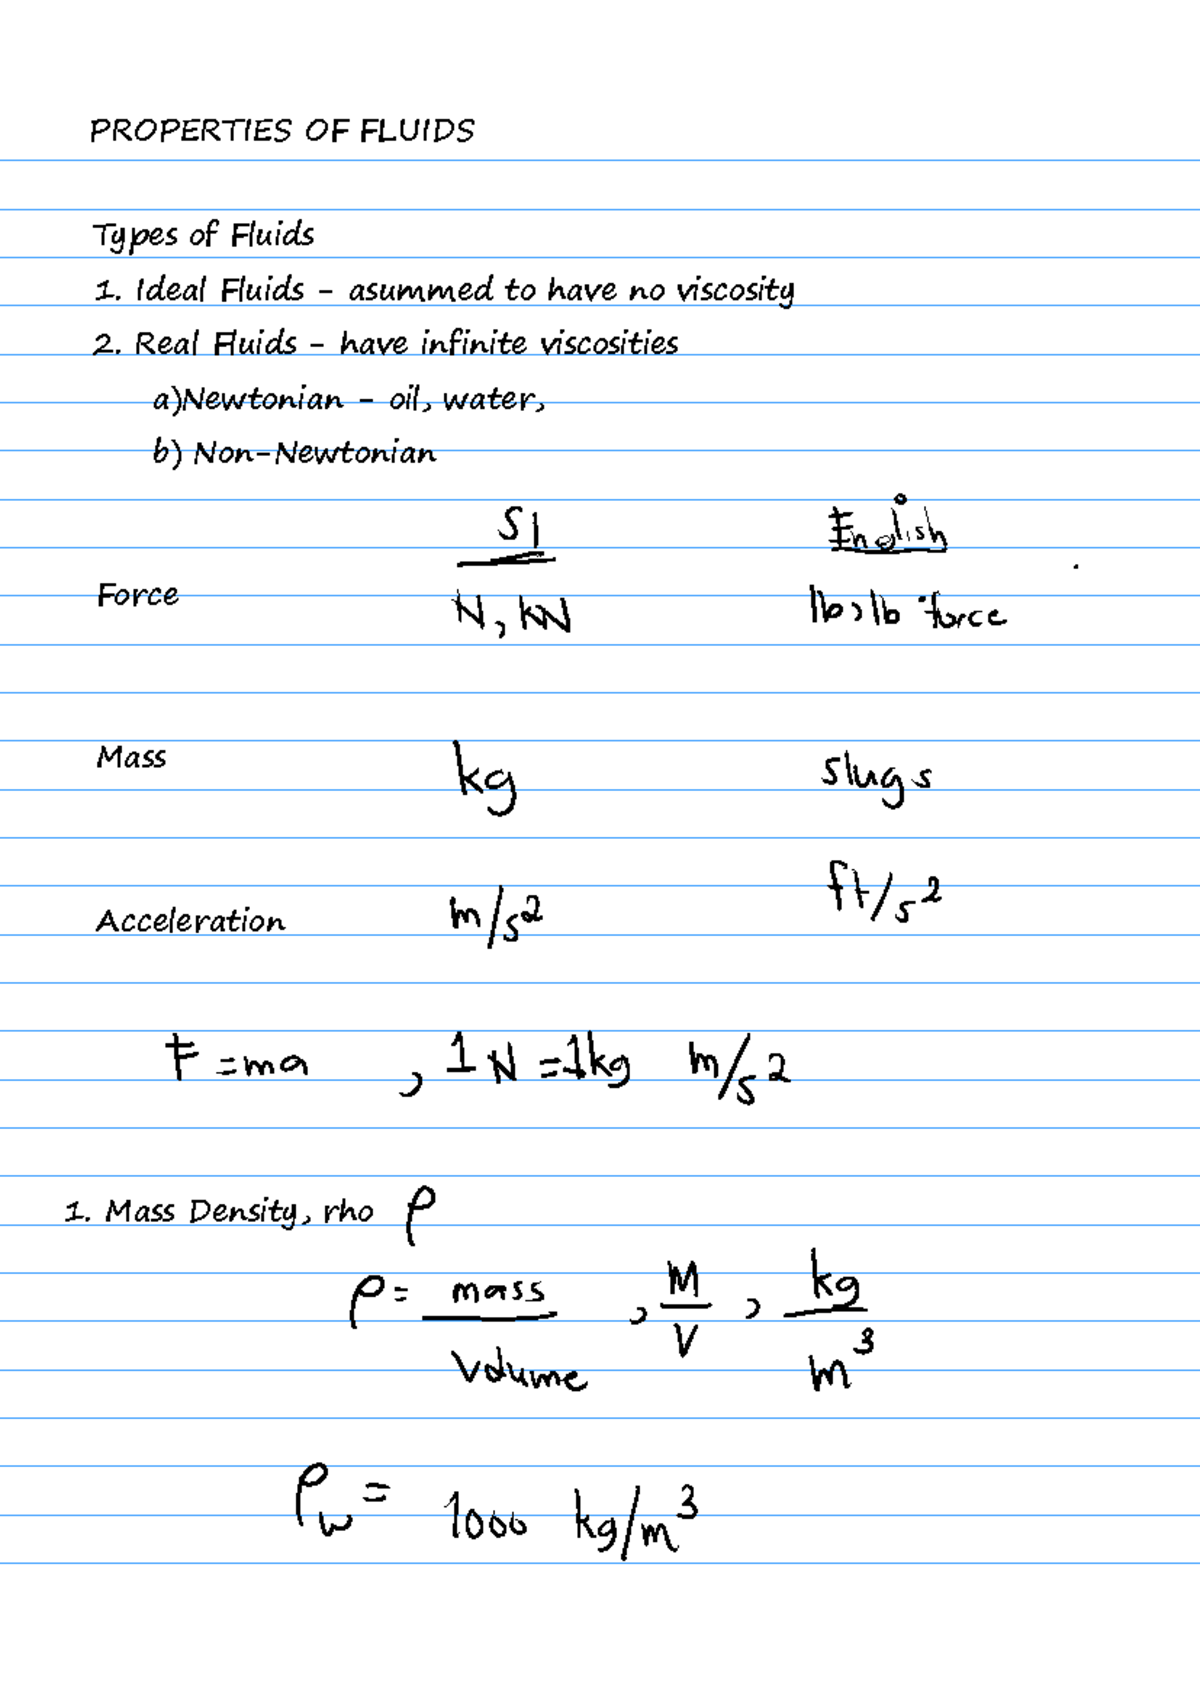 PROPERTIES OF FLUIDS
Types of Fluids
1. Ideal Fluids - asummed to have no viscosity
2. Real Fluids - have infinite viscosities
a)Newtonian - oil, water,
b) Non-Newtonian
SI English
Force N, kN lb, lb force
Mass kg slugs
Acceleration m/s² ft/s²
F = ma , 1 N = 1kg m/s²
1. Mass Density, rho ρ
ρ = mass/volume , M/V , kg/m³
ρw = 1000 kg/m³